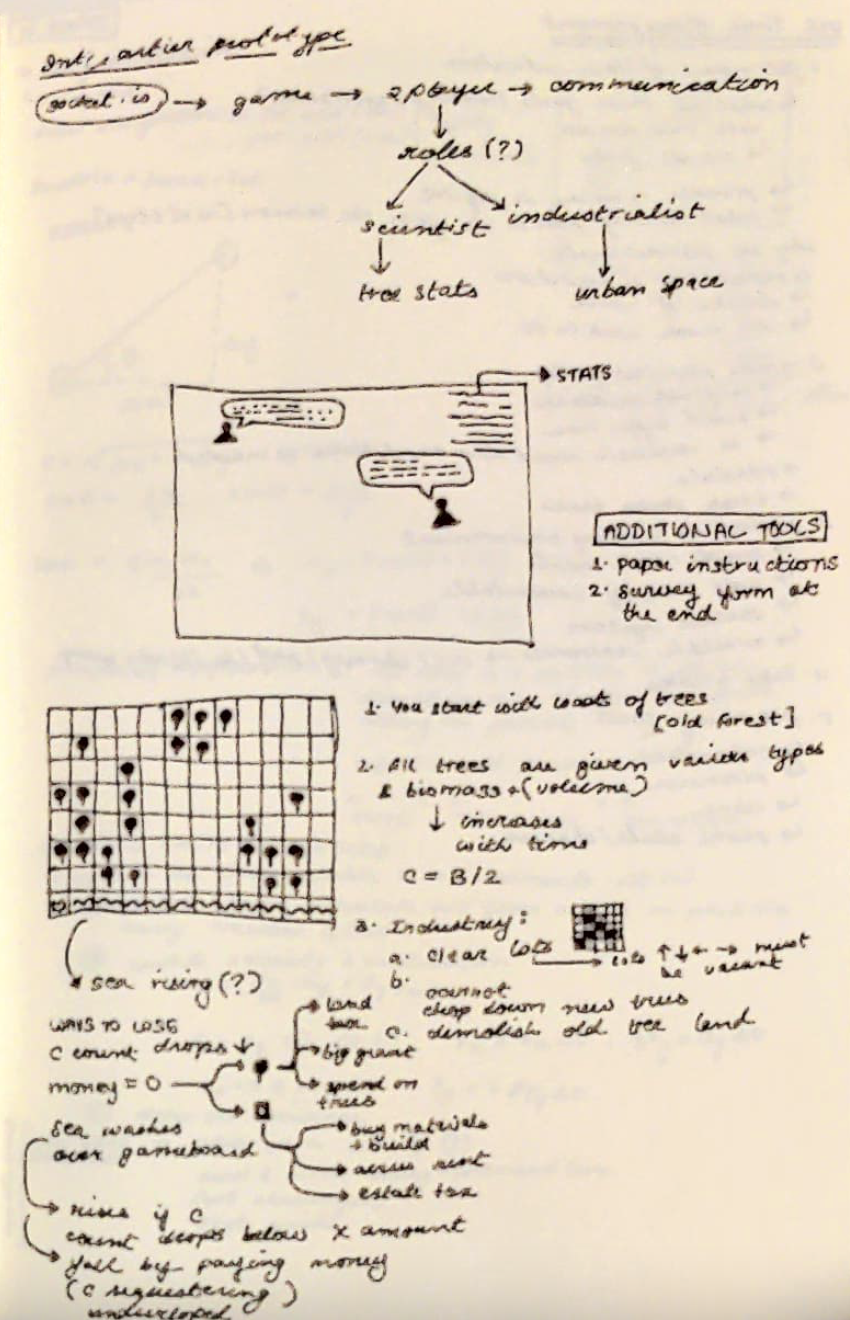 prototype
socket.io → game → 2 player → communication
roles (?)
scientist industrialist
tree stats urban space
STATS
ADDITIONAL TOOLS
1. paper instructions
2. survey form at
the end
1. You start with loads of trees
[old forest]
2. All trees are given various types
& biomass (volume)
↓ increases
with time
C = B/2
3. Industry:
a. clear lots → lots ↑ ↓ ← → must
be vacant
b. cannot
chop down new trees
c. demolish old tree land
sea rising (?)
WAYS TO LOSE
C count drops ↓
money = 0
land
tax
big grant
spend on
trees
buy materials
+ build
accrue rent
estate tax
Sea washes
over gameboard
rises if C
count drops below X amount
fall by paying money
(C sequestering